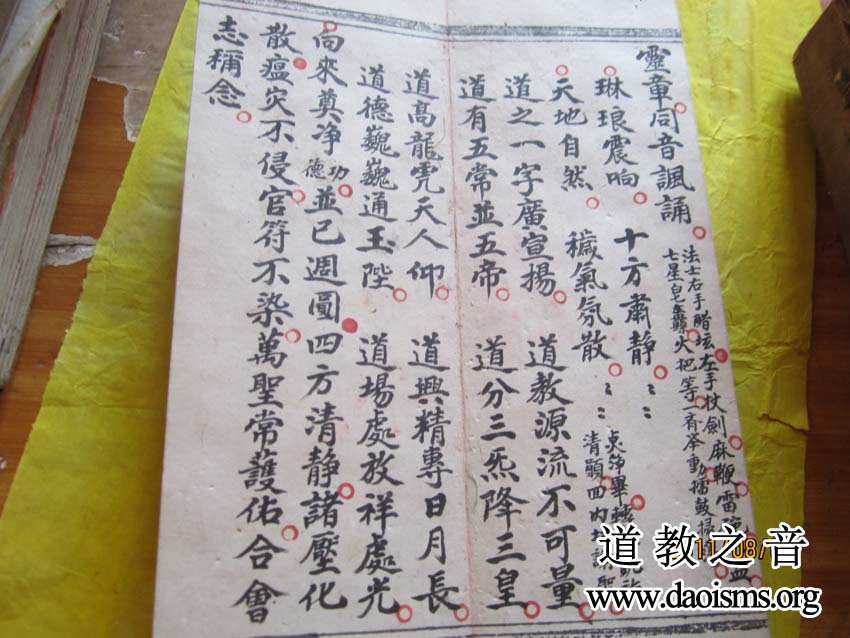 靈章同音諷誦
法士右手
左手杖劍麻鞭雷
七星皂纛火把等一齊
動擂鼓
琳琅震响
十方肅靜〻〻
天地自然
穢氣氛散〻〻
淨畢
清
四
道之一字廣宣揚
道教源流不可量
道有五常並五帝
道分三炁降三皇
道高龍虎天人仰
道興精專日月長
道德巍巍通玉陛
道場處放祥處光
向來奠净功德並已週圓四方清静諸壓化
散瘟灾不侵官符不染萬聖常護佑合會
志稱念
道教之音
www.daoisms.org